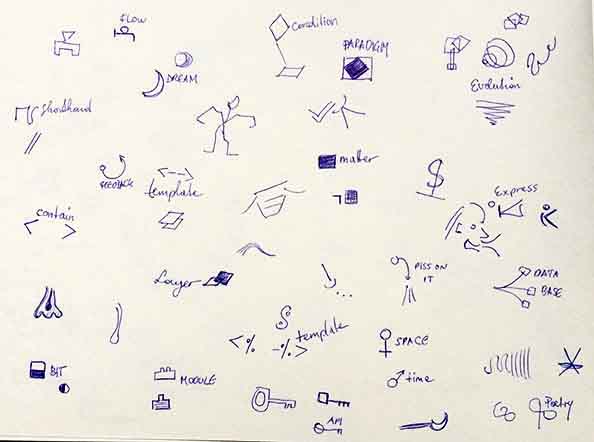 FLOW
condition
PARADIGM
DREAM
Evolution
Shorthand
matter
FEEDBACK
template
Express
contain
$
PISS ON
IT
Layer
DATA
BASE
template
<% -%>
SPACE
BIT
MODULE
time
API
Poetry